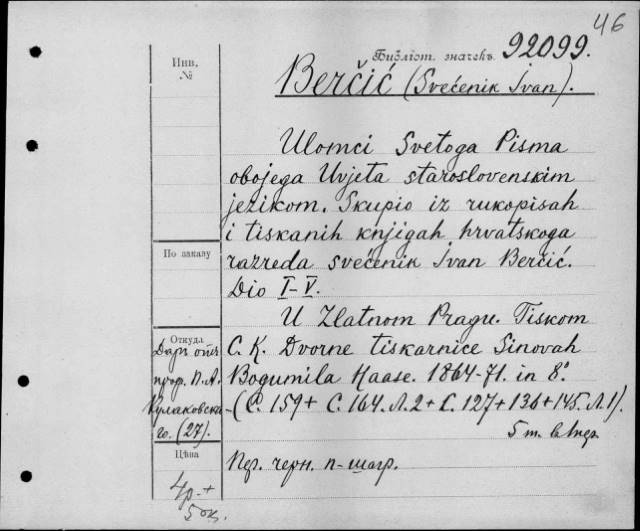 46
Библіот. значекъ 92099.
Инв.
№
Berčić (Svećenik Ivan).
Ulomci Svetoga Pisma
obojega Uvjeta staroslovenskim
jezikom. Skupio iz rukopisah
i tiskanih knjigah hrvatskoga
По заказу
razreda svećenik Ivan Berčić.
Dio I-V.
U Zlatnom Pragu. Tiskom
Откуда
Даръ отъ
проф. П. А.
Кулаковска-
го. (27).
C. K. Dvorne tiskarnice Sinovah
Bogumila Haase. 1864-71. in 8°
(С. 159 + С. 164. Л. 2 + С. 127 + 136 + 145. Л. 1).
5 т. в 1 пер.
Цѣна
Пер. черн. п-шагр.
4р. +
50к.